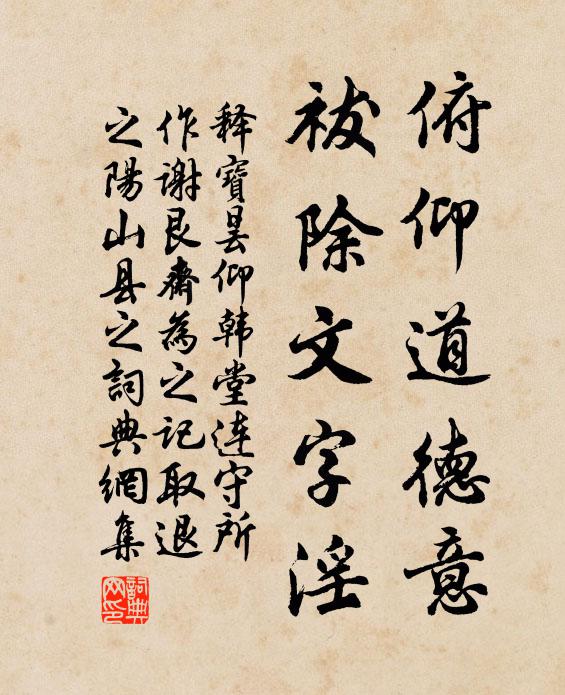 俯仰道德意
祓除文字淫
释寶曇仰韩堂连守所
作谢艮齋為之记取退
之陽山县之詞典網集
詞典网印